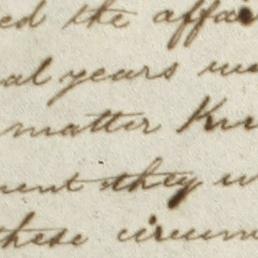 ed the affai
al years
matter Kn
ent they w
these circum